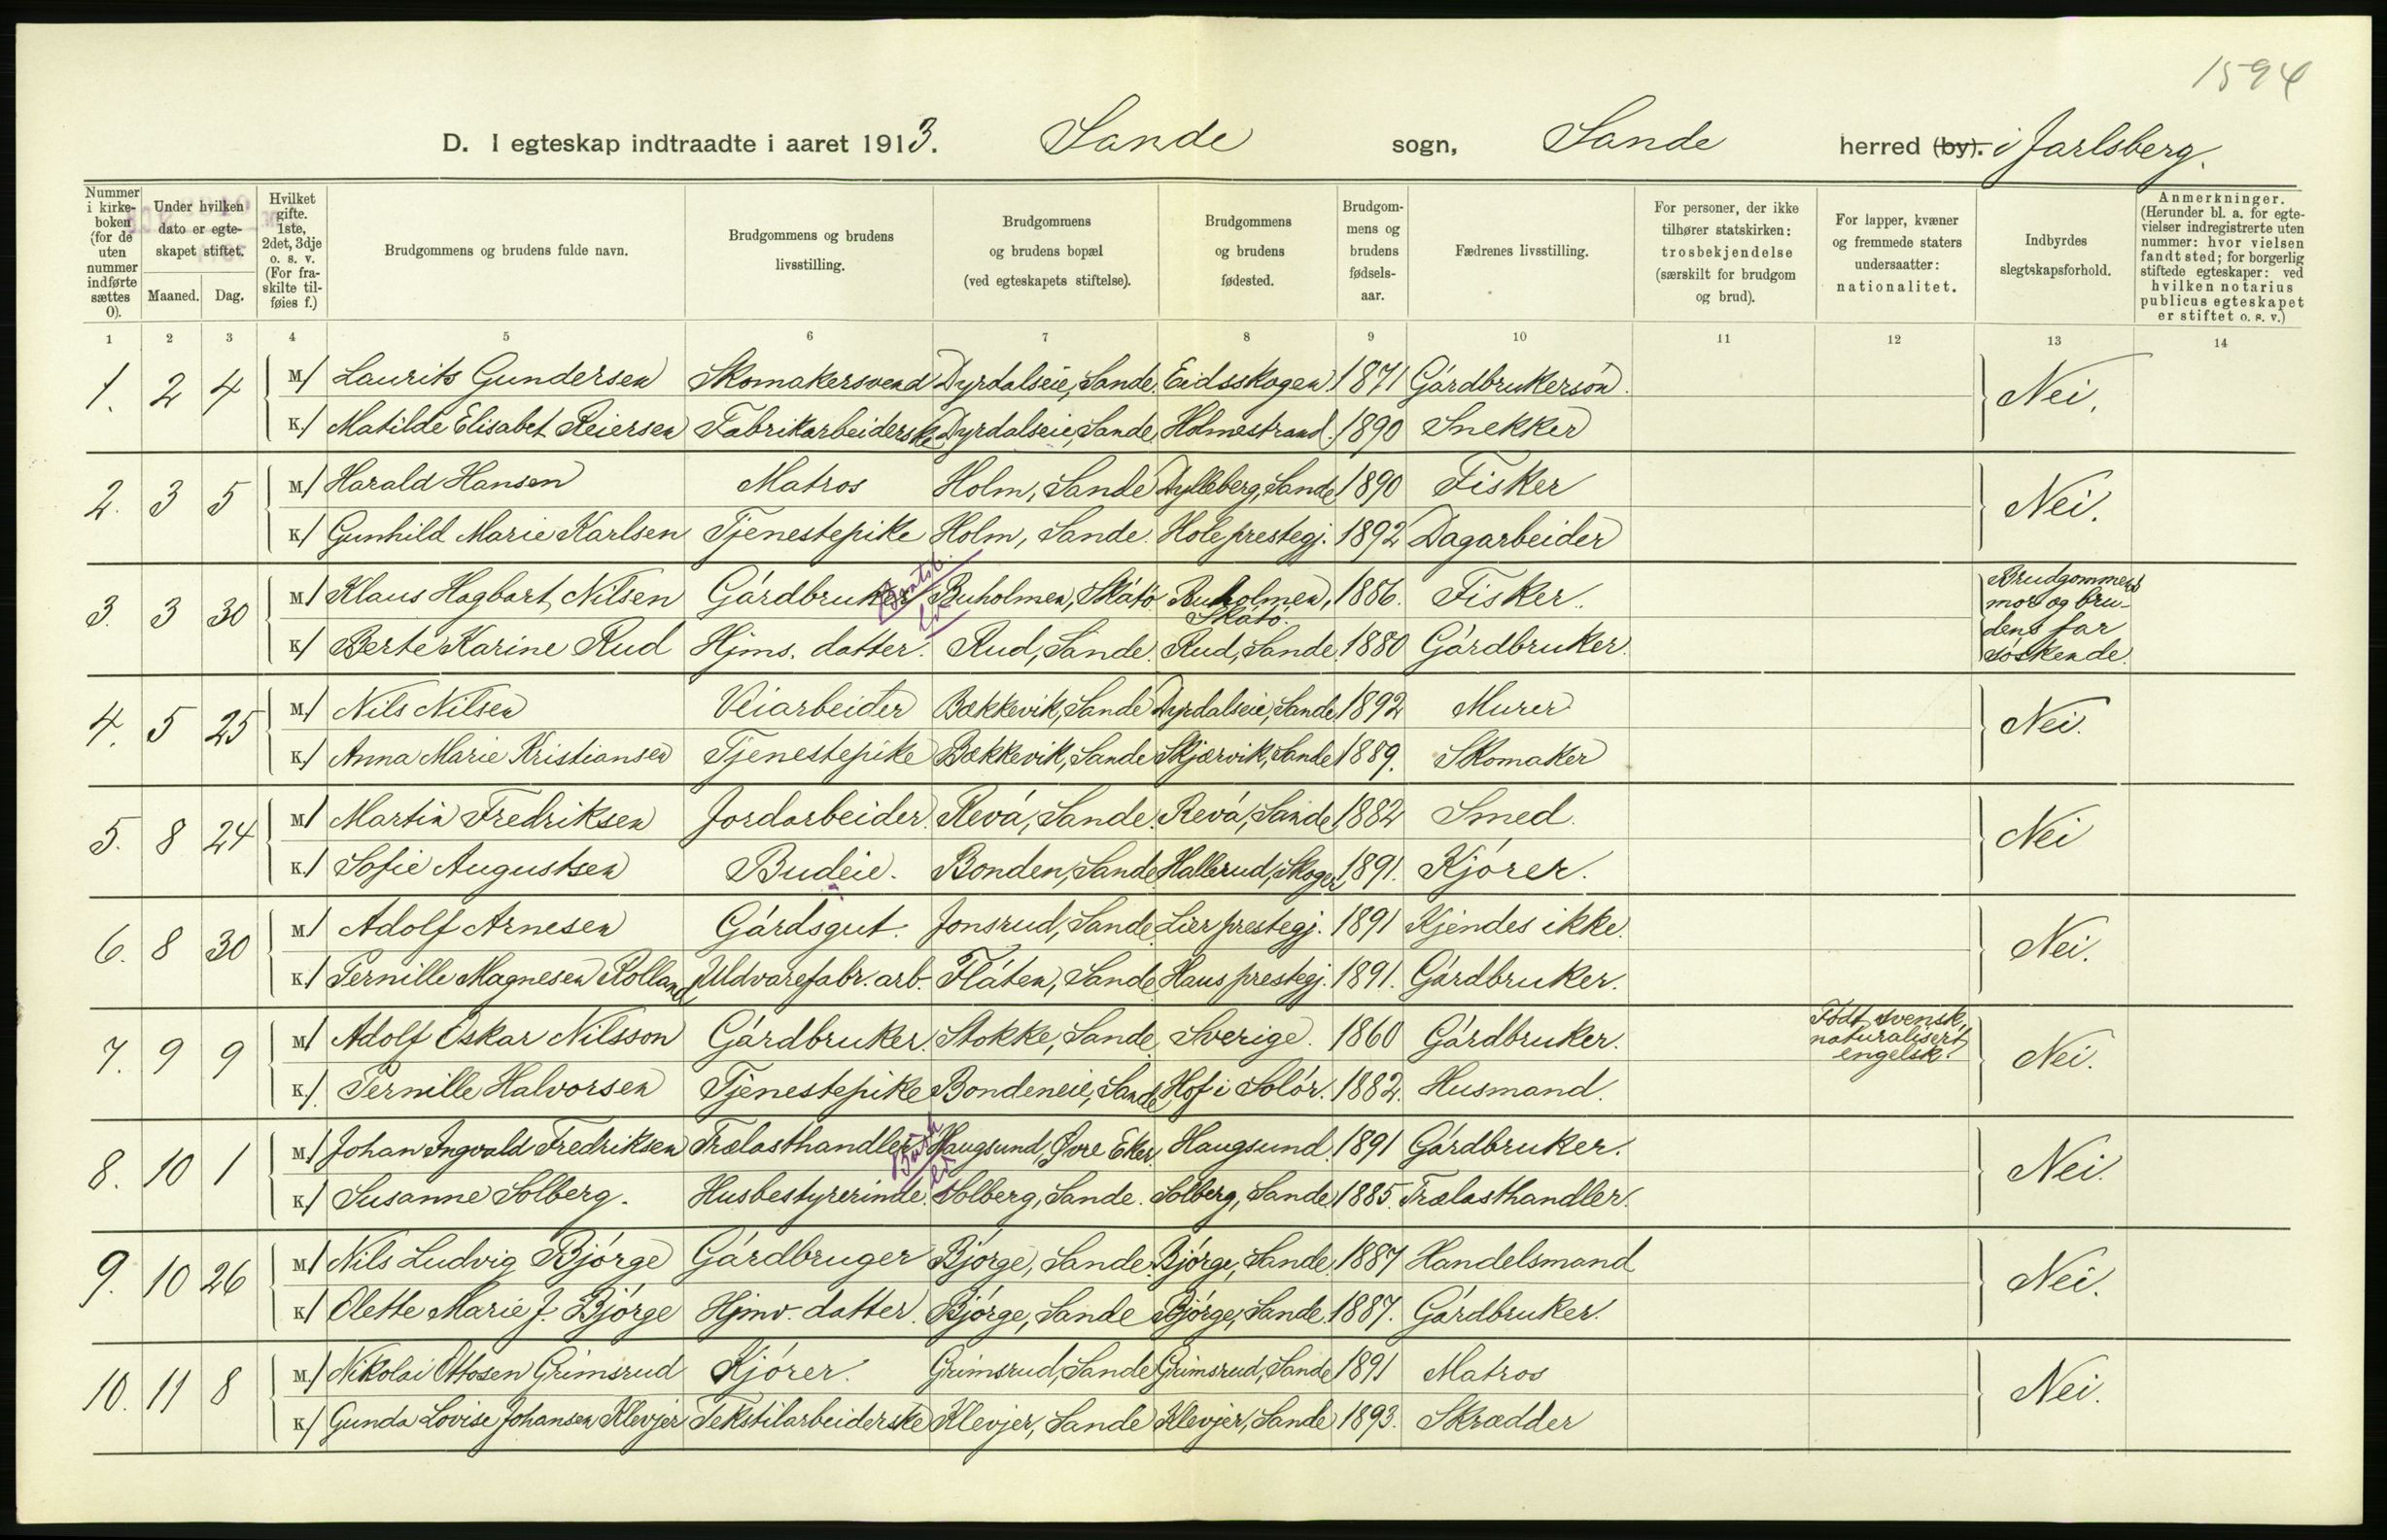 1594
D. I egteskap indtraadte i aaret 1913. Sande sogn, Sande herred (by). i Jarlsberg.
Nummer i kirkeboken (for de uten nummer indførte sættes 0).
Under hvilken dato er egteskapet stiftet.
Maaned. Dag.
Hvilket gifte. 1ste, 2det, 3dje o. s. v. (For fraskilte tilføies f.)
Brudgommens og brudens fulde navn.
Brudgommens og brudens livsstilling.
Brudgommens og brudens bopæl (ved egteskapets stiftelse).
Brudgommens og brudens fødested.
Brudgommens og brudens fødselsaar.
Fædrenes livsstilling.
For personer, der ikke tilhører statskirken: trosbekjendelse (særskilt for brudgom og brud).
For lapper, kvæner og fremmede staters undersaatter: nationalitet.
Indbyrdes slegtskapsforhold.
Anmerkninger. (Herunder bl. a. for egtevielser indregistrerte uten nummer: hvor vielsen fandt sted; for borgerlig stiftede egteskaper: ved hvilken notarius publicus egteskapet er stiftet o. s. v.)
1 2 3 4 5 6 7 8 9 10 11 12 13 14
1. 2 4 M / Laurits Gundersen Skomakersvend Dyrdalseie, Sande. Eidsskogen 1871 Gárdbrukersön. Nei.
K. / Matilde Elisabet Reiersen Fabrikarbeiderske Dyrdalseie, Sande Holmestrand. 1890 Snekker
2. 3 5 M / Harald Hansen Matros Holm, Sande Dylleberg, Sande 1890 Fisker Nei.
K / Gunhild Marie Karlsen Tjenestepike Holm, Sande. Hole prestegj. 1892 Dagarbeider
3. 3 30 M / Klaus Hagbart Nilsen Gárdbruker Buholmen, Skátö Buholmen, Skátö. 1886. Fisker. Brudgommens mor og brudens far söskende.
K / Berte Karine Rud Hjms. datter. Rud, Sande. Rud, Sande. 1880 Gárdbruker.
4. 5 25 M. / Nils Nilsen Veiarbeider Bækkevik, Sande Dyrdalseie, Sande 1892 Murer Nei.
K / Anna Marie Kristiansen Tjenestepike Bækkevik, Sande Skjærvik, Sande 1889. Skomaker
5. 8 24 M / Martin Fredriksen Jordarbeider. Revá, Sande. Revá, Sande 1882 Smed. Nei
K. / Sofie Augustsen Budeie. Bonden, Sande Hallerud, Skoger 1891. Kjörer.
6. 8 30 M / Adolf Arnesen Gárdsgut. Jonsrud, Sande Lier prestegj. 1891 Kjendes ikke. Nei.
K / Pernille Magnesen Rolland Uldvarefabr. arb. Flåten, Sande. Haus prestegj. 1891. Gárdbruker.
7. 9 9 M / Adolf Oskar Nilsson Gárdbruker. Stokke, Sande. Sverige. 1860 Gárdbruker. Födt svensk, naturalisert engelsk. Nei.
K / Pernille Halvorsen Tjenestepike Bondeneie, Sande Hof i Solör. 1882. Husmand.
8. 10 1 M. / Johan Ingvald Fredriksen Trælasthandler Haugsund, Øvre Eker. Haugsund. 1891 Gárdbruker. Nei.
K / Susanne Solberg. Husbestyrerinde. Solberg, Sande. Solberg, Sande 1885. Trælasthandler.
9. 10 26 M / Nils Ludvig Bjórge Gárdbruger Bjórge, Sande. Bjórge, Sande. 1887 Handelsmand Nei.
K / Olette Marie J. Bjórge Hjmv. datter. Bjórge, Sande Bjórge, Sande. 1887. Gárdbruker.
10. 11 8 M. / Nikolai Ottosen Grimsrud Kjórer. Grimsrud, Sande Grimsrud, Sande 1891 Matros Nei.
K / Gunda Lovise Johansen Klevjer Tekstilarbeiderske Klevjer, Sande Klevjer, Sande 1893. Skrædder